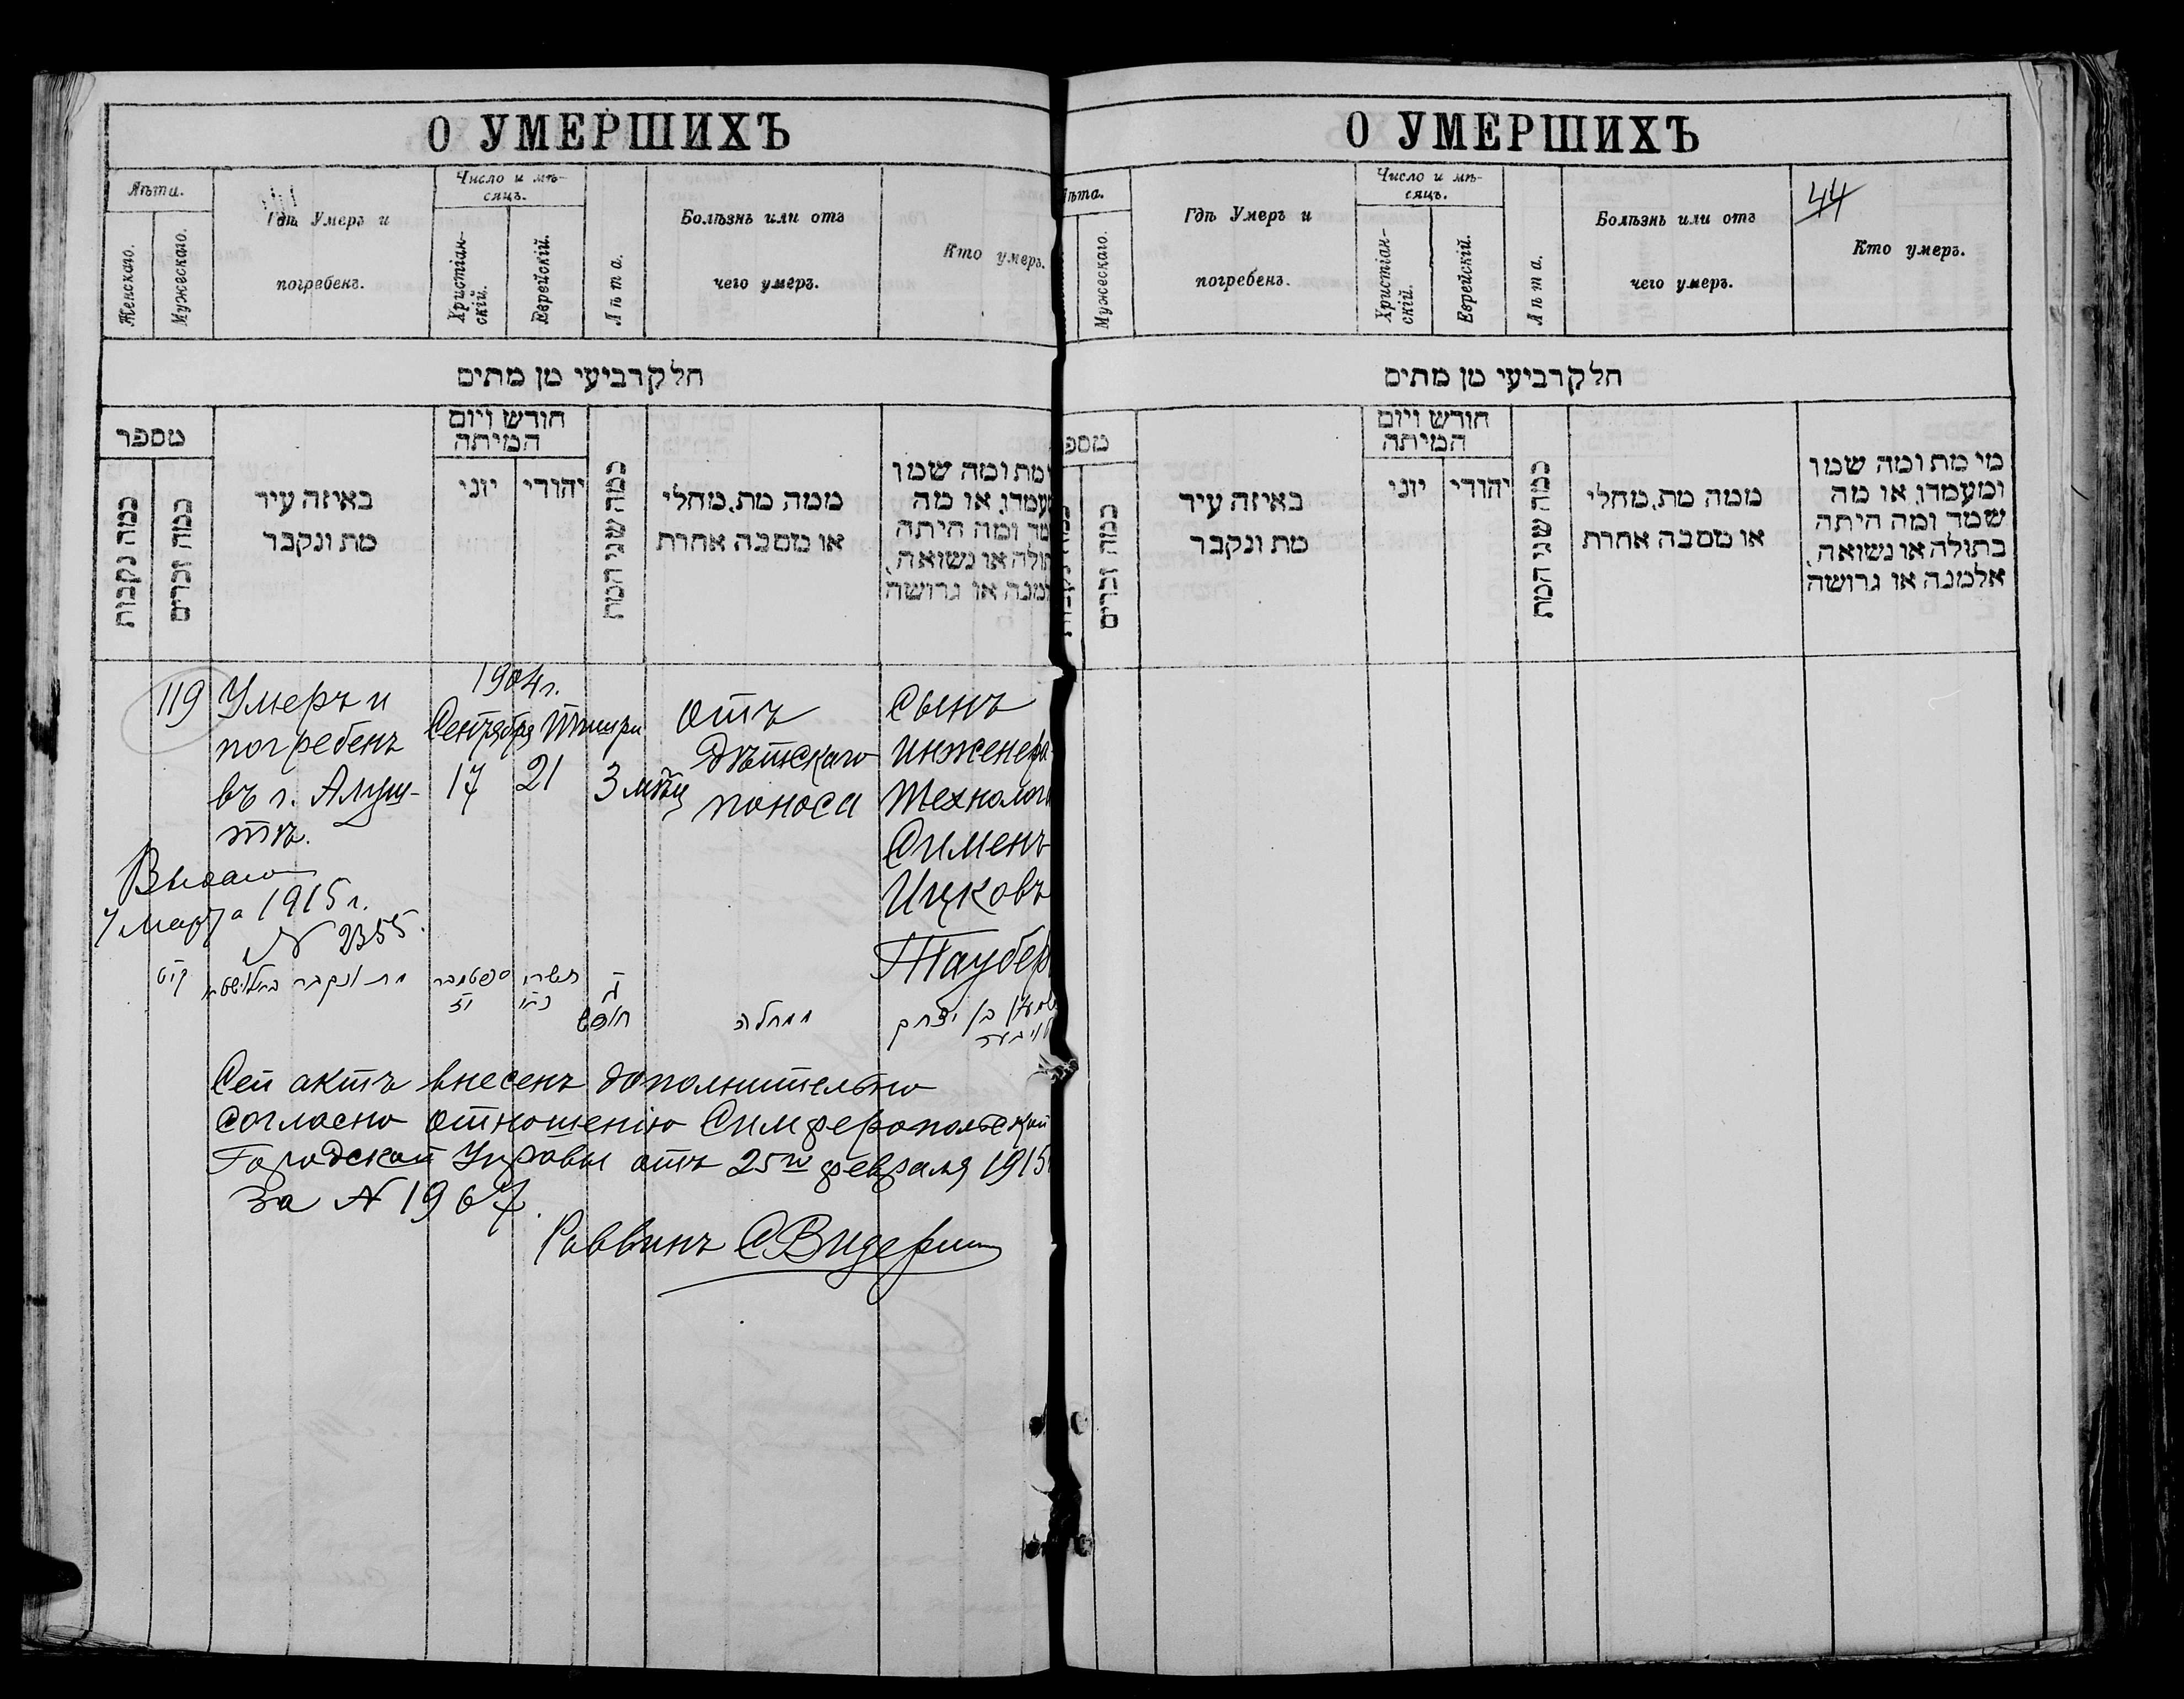 О УМЕРШИХЪ
Лѣта.
Женскаго.
Мужескаго.
Гдѣ Умеръ и
погребенъ.
Число и мѣ-
сяцъ.
Христіан-
скій.
Еврейскій.
Лѣта.
Болѣзнь или отъ
чего умеръ.
Кто умеръ.
חלק רביעי מן מתים
מספר
כמה נקבות
כמה זכרים
באיזה עיר
מת ונקבר
חודש ויום
המיתה
יוני
יהודי
כמה שני המת
ממה מת, מחלי
או מסבה אחרת
מת ומה שמו
עמדו, או מה
מד ומה היתה
תולה או נשואה,
מנה או גרושה
119
Умеръ и
погребенъ
въ г. Алуш-
тѣ.
1904 г.
Сентября Тишри
17 21
3 мѣц
отъ
дѣтскаго
поноса
сынъ
инженера
технолог
Сименъ
Ицковъ
Таубер
Выдано
7 марта 1915 г.
№ 2355.
קיט
מת ונקבר
ספטמבר
יז
תשרי
כא
ג
חדש
ממחלה
בן יצחק
Сей актъ внесенъ дополнительно
согласно отношенію Симферопольской
Городской Управы отъ 25го февраля 1915
за № 1967.
Раввинъ
О УМЕРШИХЪ
ѣта.
Мужескаго.
Гдѣ Умеръ и
погребенъ.
Число и мѣ-
сяцъ.
Христіан-
скій.
Еврейскій.
Лѣта.
Болѣзнь или отъ
чего умеръ.
44
Кто умеръ.
חלק רביעי מן מתים
מספ
כמה זכרים
באיזה עיר
מת ונקבר
חודש ויום
המיתה
יוני
יהודי
כמה שני המת
ממה מת, מחלי
או מסבה אחרת
מי מת ומה שמו
ומעמדו, או מה
שמד ומה היתה
בתולה או נשואה,
אלמנה או גרושה